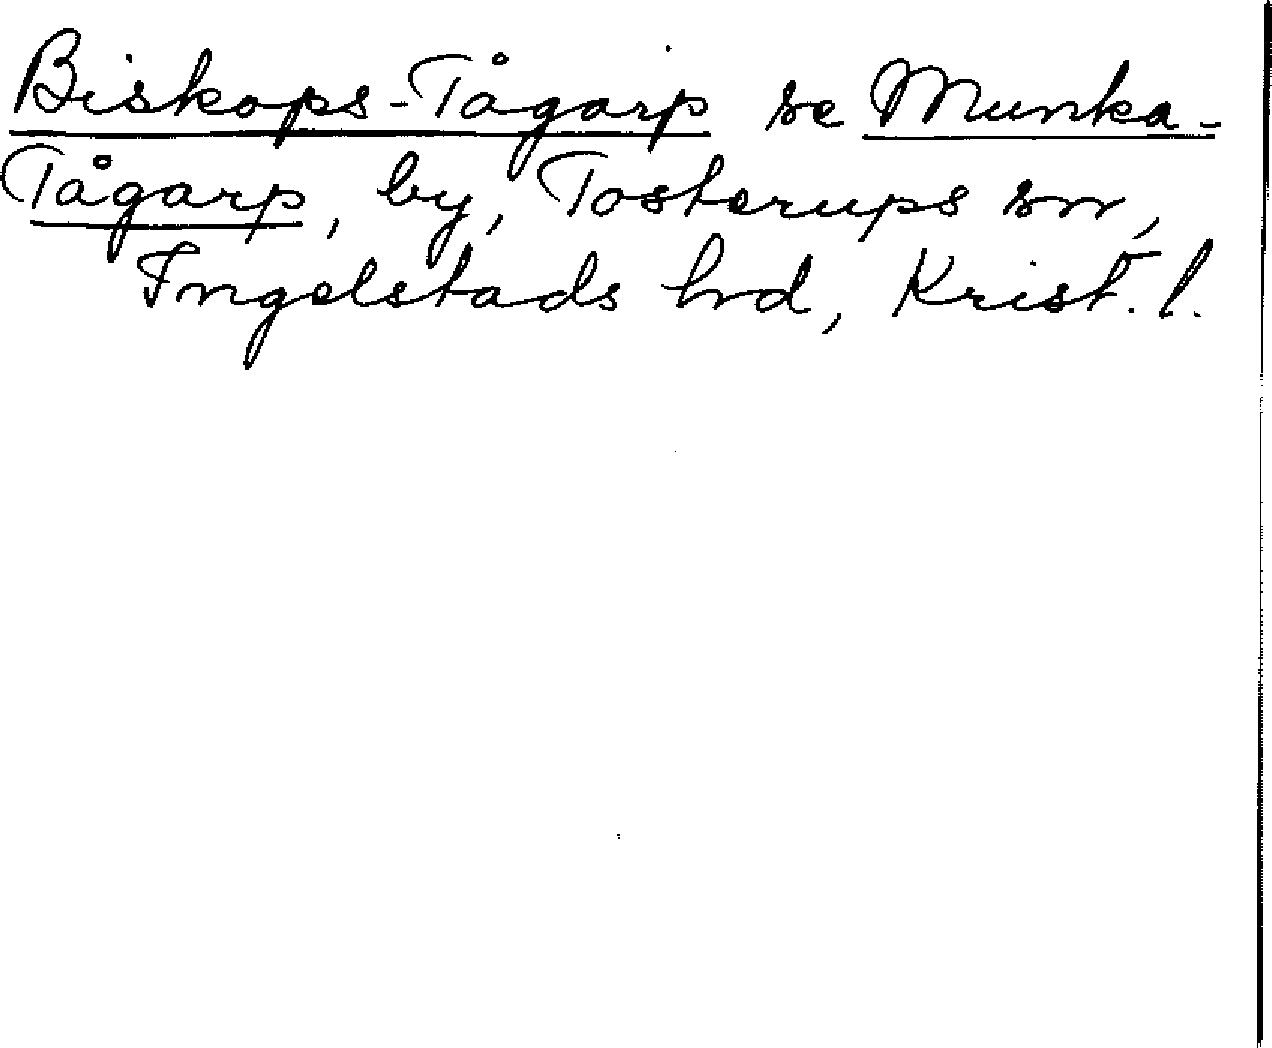 Biskops-Tågarp se Munka-
Tågarp, by, Tosterups sn,
Ingelstads hd, Krist. l.